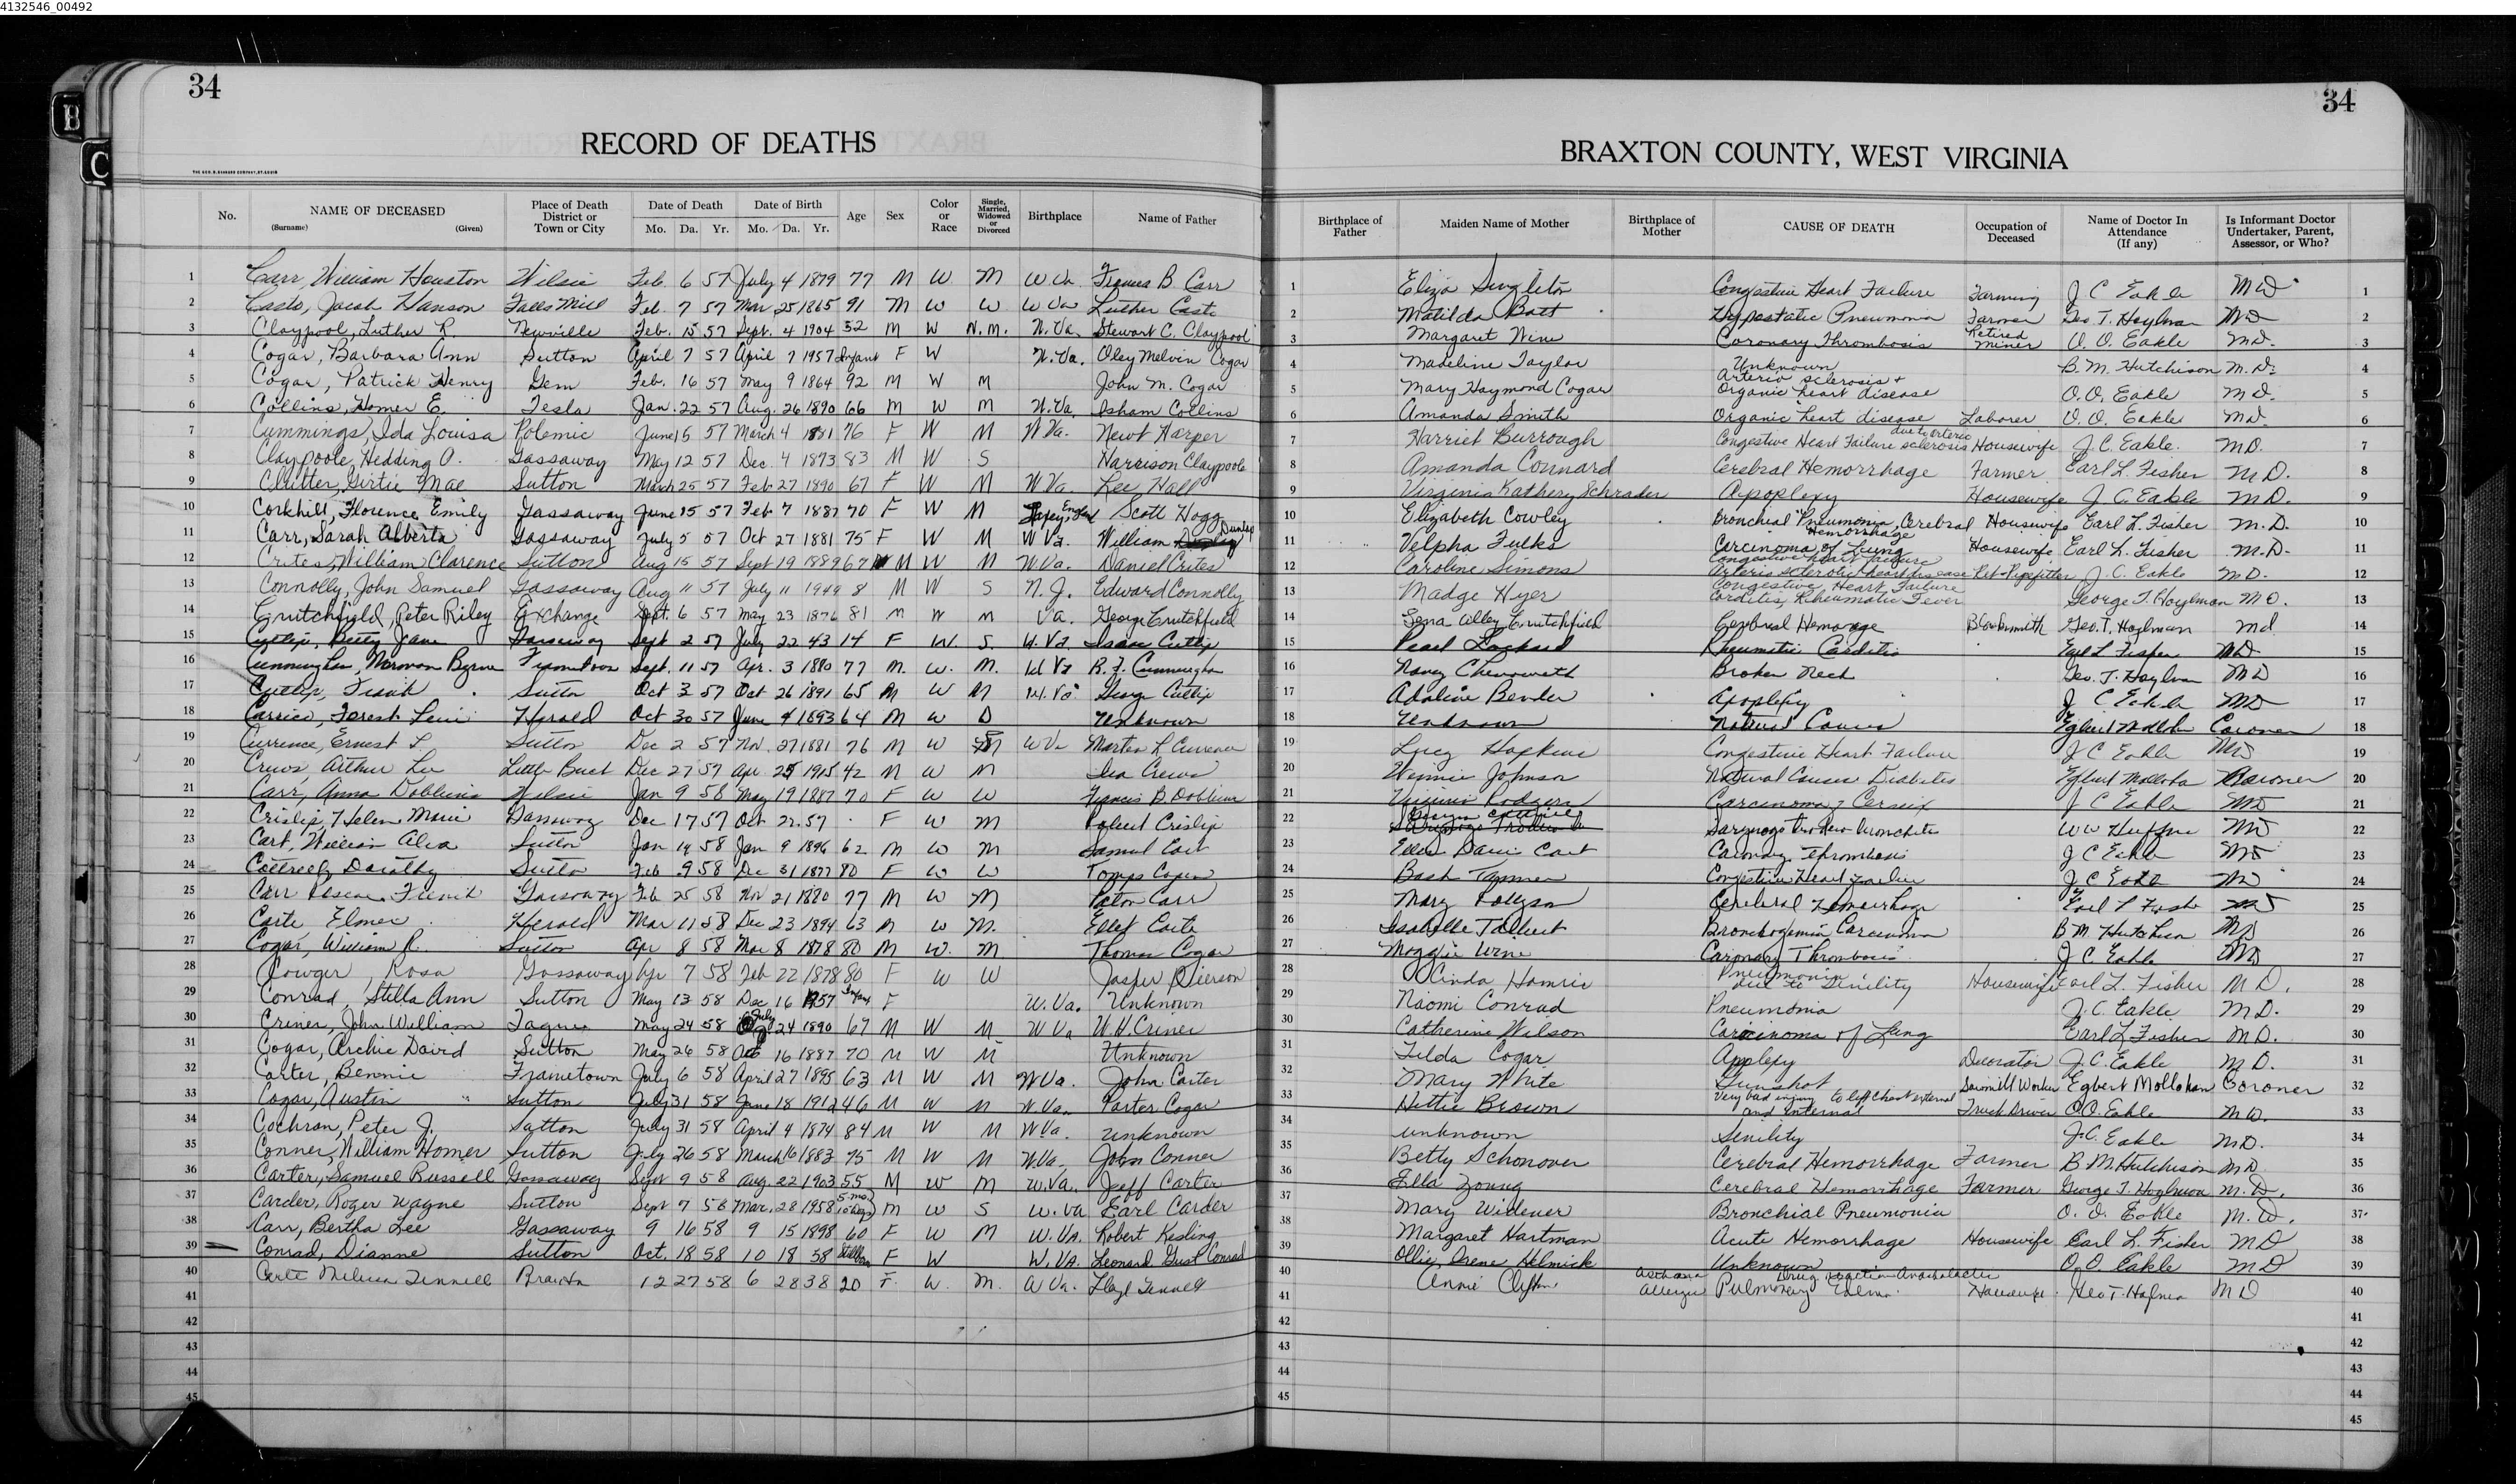 4132546_00492
34
34
B
C
RECORD OF DEATHS
BRAXTON COUNTY, WEST VIRGINIA
No. NAME OF DECEASED (Surname) (Given) Place of Death District or Town or City Date of Death Mo. Da. Yr. Date of Birth Mo. Da. Yr. Age Sex Color or Race Single, Married, Widowed or Divorced Birthplace Name of Father Birthplace of Father Maiden Name of Mother Birthplace of Mother CAUSE OF DEATH Occupation of Deceased Name of Doctor In Attendance (If any) Is Informant Doctor Undertaker, Parent, Assessor, or Who?
1 Carr, William Houston Wilsie Feb. 6 57 July 4 1879 77 M W M W Va Francis B. Carr 1 Eliza Singleton Congestive Heart Failure Farming J C Eakle MD 1
2 Casto, Jacob Hanson Falls Mill Feb. 7 57 Mar 25 1865 91 M W W W Va Luther Casto 2 Matilda Batt Hypostatic Pneumonia Farmer Geo. T. Hoylman MD 2
3 Claypool, Luther R. Newville Feb. 15 57 Sept. 4 1904 52 M W N.M. W.Va. Stewart C. Claypool 3 Margaret Wine Coronary Thrombosis Retired Miner O. O. Eakle MD. 3
4 Cogar, Barbara Ann Sutton April 7 57 April 7 1957 Infant F W W.Va. Oley Melvin Cogar 4 Madeline Taylor Unknown B.M. Hutchison M.D. 4
5 Cogar, Patrick Henry Gem Feb. 16 57 May 9 1864 92 M W M John M. Cogar 5 Mary Haymond Cogar Arterio sclerosis + Organic heart disease O.O. Eakle MD. 5
6 Collins, Homer E. Tesla Jan. 22 57 Aug. 26 1890 66 M W M W.Va. Isham Collins 6 Amanda Smith Organic heart disease Laborer O. O. Eakle MD. 6
7 Cummings, Ida Louisa Polemic June 15 57 March 4 1881 76 F W M W Va. Newt Harper 7 Harriet Burrough Congestive Heart Failure due to arterio sclerosis Housewife J.C. Eakle. MD. 7
8 Claypoole, Hedding O. Gassaway May 12 57 Dec. 4 1873 83 M W S Harrison Claypoole 8 Amanda Connard Cerebral Hemorrhage Farmer Earl L. Fisher M D. 8
9 Clutter, Girtie Mae Sutton March 25 57 Feb 27 1890 67 F W M W Va Lee Hall 9 Virginia Kathery Schrader Apoplexy Housewife J. C. Eakle M D. 9
10 Corkhill, Florence Emily Gassaway June 15 57 Feb 7 1887 70 F W M England Scott Hogg 10 Elizabeth Cowley Bronchial Pneumonia, Cerebral Hemorrhage Housewife Earl L. Fisher M.D. 10
11 Carr, Sarah Alberta Gassaway July 5 57 Oct 27 1881 75 F W M W Va. William Dunlap 11 Velpha Fulks Carcinoma of Lung Housewife Earl L. Fisher M.D. 11
12 Crites, William Clarence Sutton Aug 15 57 Sept 19 1889 67 M W M W.Va. Daniel Crites 12 Caroline Simons Congestive heart failure Arterio sclerotic heart disease Ret-Pipefitter J.C. Eakle MD. 12
13 Connolly, John Samuel Gassaway Aug 11 57 July 11 1949 8 M W S N.J. Edward Connolly 13 Madge Hyer Congestive Heart Failure Carditis, Rheumatic Fever George T. Hoylman MD. 13
14 Crutchfield, Peter Riley Exchange Sept. 6 57 May 23 1876 81 M W M Va. George Crutchfield 14 Lena Alley Crutchfield Cerebral Hemorage Blacksmith Geo. T. Hoylman Md 14
15 Cutlip, Betty Jane Gassaway Sept 2 57 July 22 43 14 F W. S. W. Va. Isaac Cutlip 15 Pearl Lockard Rheumatic Carditis Earl L Fisher MD 15
16 Cunningham, Byrne Frametown Sept. 11 57 Apr. 3 1880 77 M. W. M. W Va R. F. Cunningham 16 Nancy Chenoweth Broken Neck Geo. T. Hoylman MD 16
17 Cutlip, Frank Sutton Oct 3 57 Oct 26 1891 65 M W M W. Va. George Cutlip 17 Adaline Bender Apoplexy J C Eakle MD 17
18 Forest Levi Herold Oct 30 57 June 4 1893 64 M W D Unknown 18 Unknown Natural Causes Egbert Mollohan Coroner 18
19 Currence, Ernest L. Sutton Dec 2 57 Nov. 27 1881 76 M W W Va Currence 19 Lucy Hopkins Congestive Heart Failure J C Eakle MD 19
20 Crews, Arthur Lee Little Buck Dec 27 57 Apr 25 1915 42 M W M Ira Crews 20 Winnie Johnson Natural Causes Diabetes Egbert Mollohan Coroner 20
21 Carr, Anna Dobbins Wilsie Jan 9 58 May 19 1887 70 F W W Francis B Dobbins 21 Virginia Rodgers Carcinoma of Cervix J C Eakle MD 21
22 Crislip, Helen Marie Gassaway Dec 17 57 Oct 22 57 F W M Robert Crislip 22 Bronchitis W W Huffman MD 22
23 Cart, William Alva Sutton Jan 14 58 Jan 9 1896 62 M W M Samuel Cart 23 Ellen Cart Coronary Thrombosis J C Eakle MD 23
24 Cottrell, Dorothy Sutton Feb 9 58 Dec 31 1877 80 F W W 24 Congestive Heart Failure J C Eakle MD 24
25 Carr French Gassaway Feb 25 58 Nov 21 1880 77 M W M Paton Carr 25 Mary Cerebral Hemorrhage Earl L Fisher MD 25
26 Carte Elmer Herold Mar 11 58 Dec 23 1894 63 M W M. Carte 26 Isabelle Talbert Bronchogenic Carcinoma B M. Hutchison MD 26
27 Cogar, William R. Sutton Apr 8 58 Mar 8 1878 80 M W. M Thomas Cogar 27 Maggie Wine Coronary Thrombosis J C Eakle MD 27
28 Cowger, Rosa Gassaway Apr 7 58 Feb 22 1878 80 F W W Jasper Dierson 28 Cinda Hamric Pneumonia due to Sinility Housewife Earl L. Fisher M D. 28
29 Conrad, Stella Ann Sutton May 13 58 Dec 16 1957 Infant F W.Va. Unknown 29 Naomi Conrad Pneumonia J. C. Eakle M.D. 29
30 Criner, John William Tague May 24 58 July 24 1890 67 M W M W Va W.H. Criner 30 Catherine Wilson Carcinoma of Lung Earl L Fisher M D. 30
31 Cogar, Archie David Sutton May 26 58 Oct 16 1887 70 M W M Unknown 31 Tilda Cogar Decorator J. C. Eakle M D. 31
32 Carter, Bennie Frametown July 6 58 April 27 1895 63 M W M W Va. John Carter 32 Mary White Gunshot Sawmill Worker Egbert Mollohan Coroner 32
33 Cogar, Austin Sutton July 31 58 June 18 1912 46 M W M W.Va. Porter Cogar 33 Hettie Brown Very bad injury to left chest external and internal Truck Driver O.O. Eakle M D. 33
34 Cochran, Peter J. Sutton July 31 58 April 4 1874 84 M W M W Va. Unknown 34 unknown Sinility J.C. Eakle MD. 34
35 Conner, William Homer Sutton July 26 58 March 16 1883 75 M W M W.Va. John Conner 35 Betty Schonover Cerebral Hemorrhage Farmer B M. Hutchison MD 35
36 Carter, Samuel Russell Gassaway Sept 9 58 Aug. 22 1903 55 M W M W.Va. Jeff Carter 36 Ella Young Cerebral Hemorrhage Farmer George T. Hoylman M.D. 36
37 Carder, Roger Wayne Sutton Sept 7 58 Mar. 28 1958 5 mo 10 days M W S W.Va Earl Carder 37 Mary Widener Bronchial Pneumonia O. O. Eakle M.D. 37
38 Carr, Bertha Lee Gassaway 9 16 58 9 15 1898 60 F W M W. VA. Robert Kesling 38 Margaret Hartman Acute Hemorrhage Housewife Earl L. Fisher MD 38
39 Conrad, Dianne Sutton Oct. 18 58 10 18 58 Stillborn F W W. VA. Leonard Gust Conrad 39 Ollie Irene Helmick Unknown O. O. Eakle MD 39
40 Carte Melissa Tinnell Braxton 12 27 58 6 28 38 20 F. W. M. W Va. Tinnell 40 Annie Clifton Asthma Allergic Drug reaction Pulmonary Edema Housewife Geo T. Hoylman MD 40
41 41 41
42 42 42
43 43 43
44 44
45 45 44
45